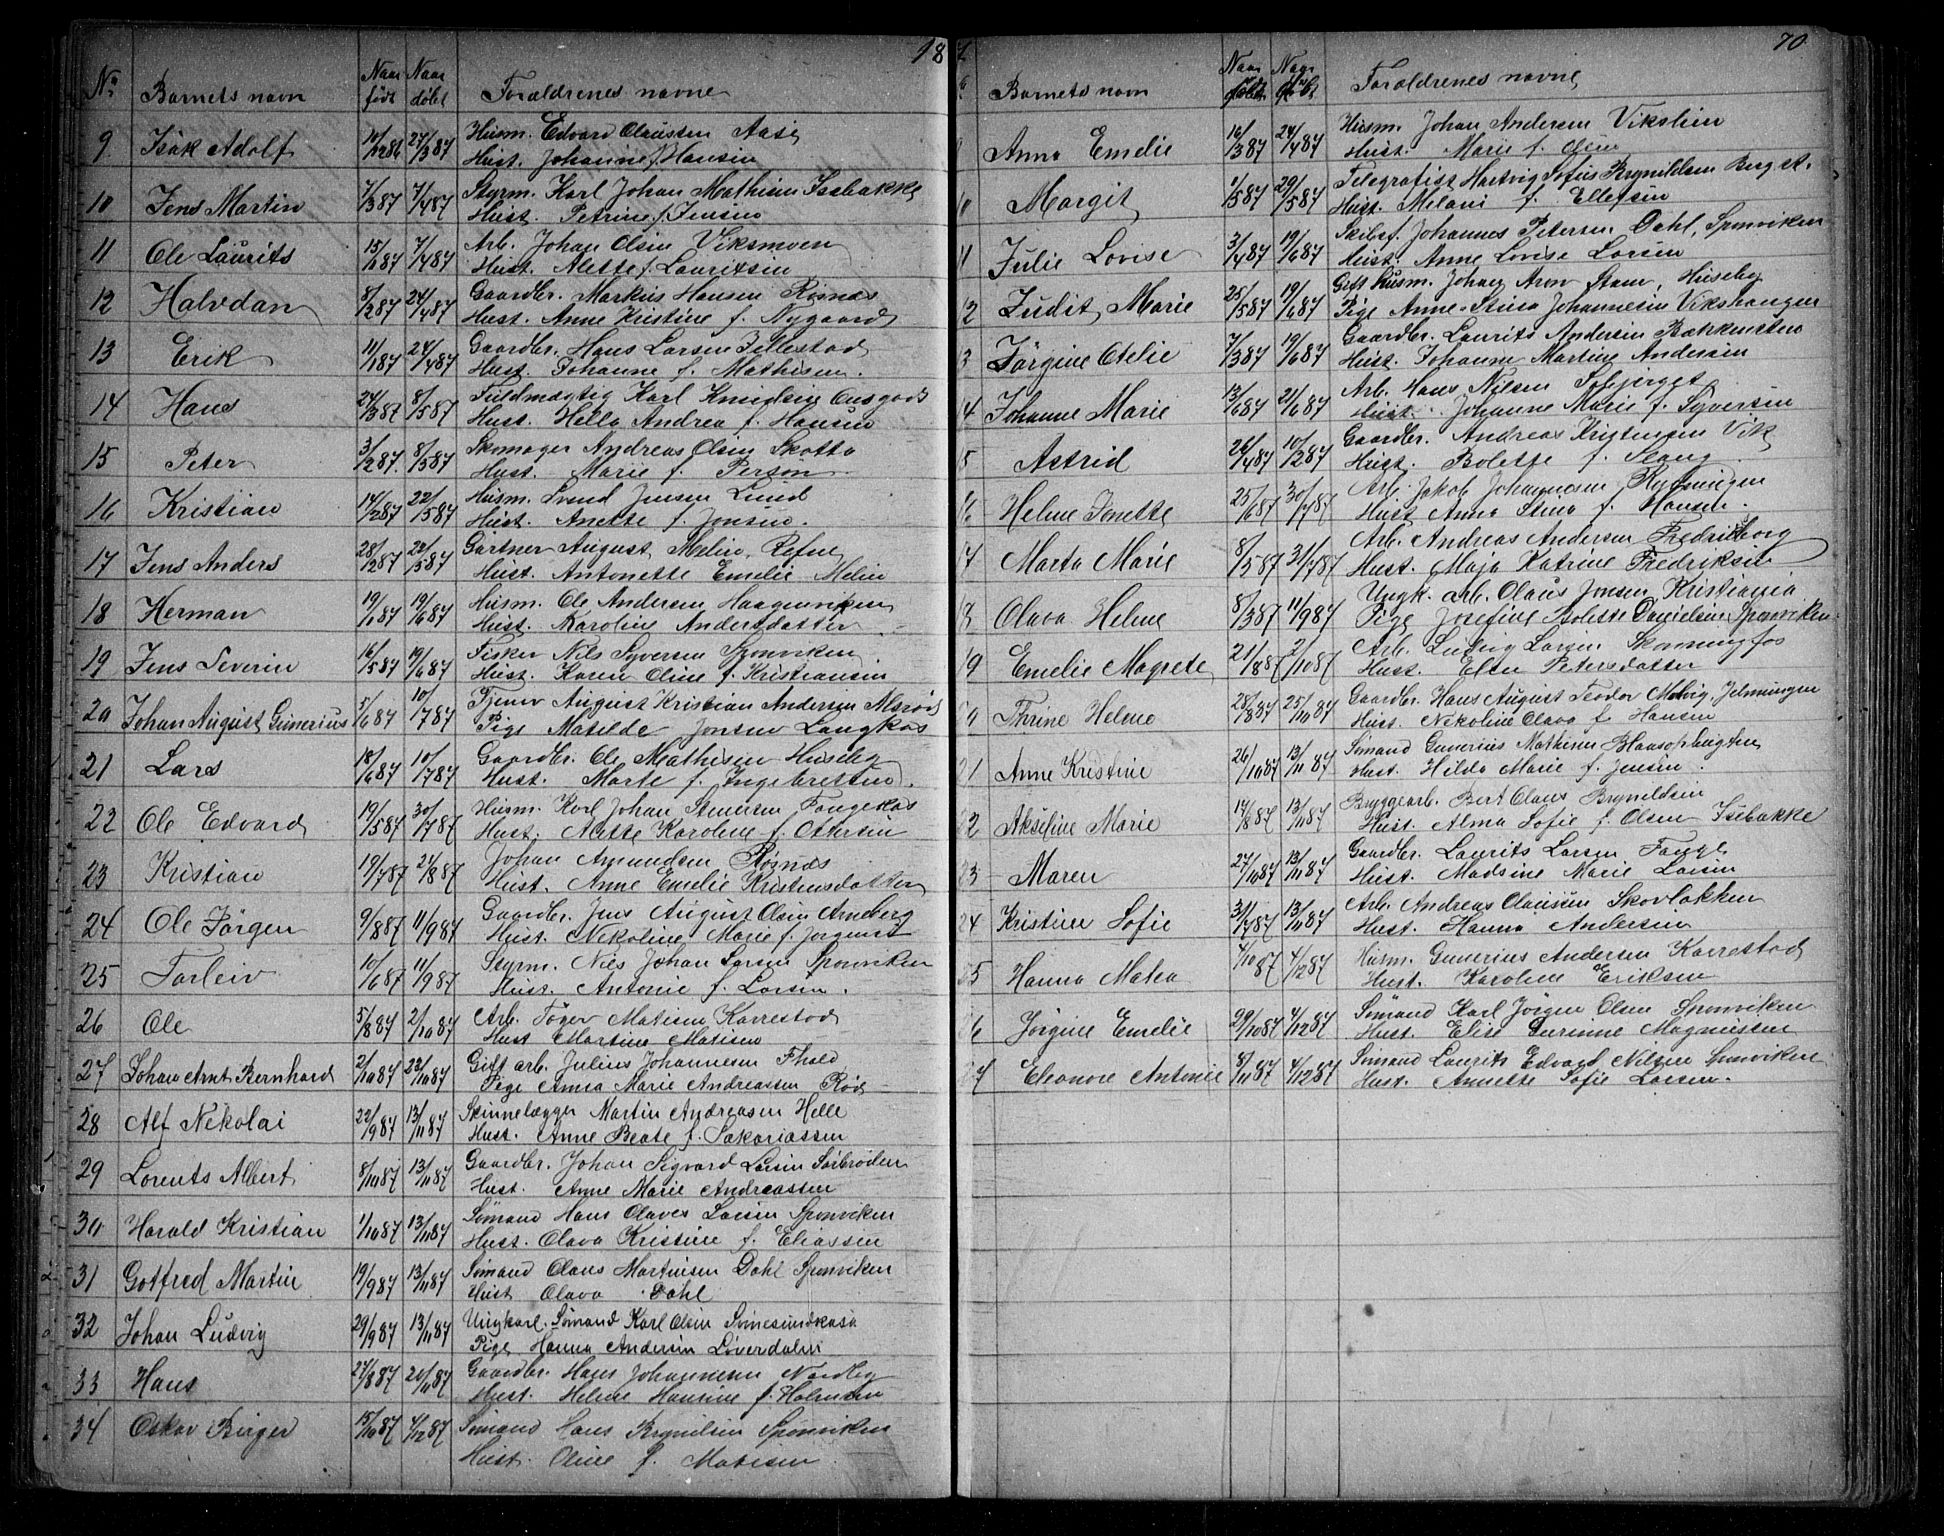 18
No Barnets navn Naar født Naar døbt Foraldrenes navne
9 Isak Adolf 27/3 87 Husm. Edvard Claussen Aase
Hust. Johanne f. Hansen
10 Jens Martin 7/3 87 7/4 87 Styrm. Karl Johan Mathisen Isebakke
Hust. Petrine f. Jensen
11 Ole Laurits 7/4 87 Arb. Johan Olsen Viksmoen
Hust. Alette f. Lauritsen
12 Halvdan 8/2 87 24/4 87 Gaardbr. Markus Hansen Røsnæs
Hust. Anne Kristine f. Nygaard
13 Erik 11/1 87 24/4 87 Gaardbr. Hans Larsen
Hust. Johanne f. Mathisen.
14 Hans 24/3 87 8/5 87 Fuldmægtig Karl Knudsen
Hust. Hella Andrea f. Hansen
15 Peter 3/2 87. 8/5 87 Skomager Andreas Olsen Skotta
Hust. Marie f. Person
16 Kristian 14/2 87 22/5 87 Husm. Svend Jensen Lund
Hust. Anette f. Jonsen.
17 Jens Anders 28/2 87 22/5 87 Gartner August Melin, Refne
Hust. Antonette Emelie Melin
18 Herman 19/1 87 19/6 87 Husm. Ole Andersen Haagenviken
Hust. Karoline Andersdatter
19 Jens Severin 16/5 87 19/6 87 Fisker Nils Syversen Sponviken
Hust. Karen Oline f. Kristiansen
20 Johan August Gunerius 5/6 87 10/7 87 Tjener August Kristian Andersen
Pige Matilde Jonsen Langkas
21 Lars 18/6 87 10/7 87 Gaardbr. Ole Mathisen Huseby
Hust. Marte f. Ingebretsen.
22 Ole Edvard 19/5 87 30/7 87 Husm. Karl Johan Stenersen Tangekas
Hust. Alette Karoline f. Ottersen
23 Kristian 19/7 87 21/8 87 Johan Amundsen Røsnæs
Hust. Anne Emelie Kristensdatter
24 Ole Jørgen 9/8 87 11/9 87 Gaardbr. Jens August Olsen Arneberg
Hust. Nekoline Marie f. Jørgensen
25 Torleiv 10/6 87 11/9 87 Styrm. Nils Johan Larsen Sponviken
Hust. Antonie f. Larsen.
26 Ole 5/8 87 2/10 87 Arb. Tøger Matisen Karrestad
Hust Martine Matisen
27 Johan Arnt Bernhard 2/10 87 23/10 87 Gift arb. Julius Johannesen
Pige Anna Marie Andreassen Rød
28 Alf Nekolai 22/9 87 13/11 87 Skinnelægger Martin Andreasen Helle
Hust. Anne Beate f. Sakariassen
29 Lorents Albert 8/10 87 13/11 87 Gaardbr. Johan Sigvard Larsen Sørbrøden
Hust. Anne Marie Andreassen
30 Harald Kristian 1/10 87 13/11 87 Sømand Hans Olaves Larsen Sponviken
Hust. Olava Kristine f. Eliassen
31 Gotfred Martin 19/9 87 13/11 87 Sømand Claus Martinsen Dahl Sponviken
Hust Olava Dahl
32 Johan Ludvig 29/9 87 13/11 87 Ungkarl. Sømand Karl Olsen
Pige Hanna Andersen Løverdalen
33 Hans 27/8 87 20/11 87 Gaardbr. Hans Johannesen Nordby
Hust. Helene Hansine f. Halvorsen
34 Oskar Birger 15/10 87 4/12 87 Sømand Hans Brynildsen Sponviken
Hust. Oline f. Matisen
7
70
Barnets navn Naar født Naar døbt Foraldrenes navne
Anna Emelie 16/3 87 24/4 87 Husm. Johan Andersen Vikslien
Hust. Marie f. Olsen
10 Margit 1/5 87 29/5 87 Telegrafist Hartvig Sofus Brynildsen Berg st.
Hust. Milani f. Ellefsen
11 Julie Lovise 3/4 87 19/6 87 Skibsf. Johannes Petersen Dahl, Sponviken
Hust. Anne Lovise Larsen
12 Judit Marie 25/5 87 19/6 87 Gift husm. Johan Aron Stam, Huseby
Pige Anne-Stina Johannesen Vikshaugen
3 Jørgine Otelie 7/3 87 19/6 87 Gaardbr. Laurits Andersen Bakkensten
Hust. Johanne Martine Andersen
14 Johanne Marie 13/6 87 21/6 87 Arb. Hans Nilsen
Hust. Johanne Marie f. Syversen
5 Astrid 26/4 87 10/2 87 Gaardbr. Andreas Kristensen Vik
Hust. Bolette f. Stang
16 Helene Jonette 25/6 87 30/7 87 Arb. Jakob Johannesen Rydningen
Hust. Anna Stina f. Hansen.
17 Marta Marie 8/5 87 31/7 87 Arb. Andreas Andersen Fredriksborg
Hust. Maja Katrine Fredriksen
18 Olava Helene 8/3 87 11/9 87 Ungk. Arb. Olaus Jonsen Kristiania
Pige Josefine Bolette Danielsen Sponviken
19 Emelie Magrete 21/8 87 2/10 87 Arb. Ludvig Larsen Skonningfos
Hust. Elen Petersdatter
20 Thrine Helene 28/8 87 25/10 87 Gaardbr. Hans August Teodor Melvig, Jelmungen
Hust. Nekoline Olava f. Hansen
21 Anne Kristine 26/10 87 13/11 87 Sømand Gunerius Mathisen
Hust. Hilda Marie f. Jensen
22 Aksefine Marie 14/8 87 13/11 87 Bryggearb. Bert Olaus Brynildsen
Hust. Alma Sofie f. Olsen Isebakke
23 Maren 27/10 87 13/11 87 Gaardbr. Laurits Larsen Tange
Hust. Madsine Marie Larsen
24 Kristine Sofie 31/7 87 13/11 87 Arb. Andreas Clausen Skovløkken
Hust. Hanna Andersen
25 Hanna Matea 4/10 87 4/12 87 Husm. Gunerius Andersen Karrestad
Hust. Karoline Eriksen
26 Jørgine Emelie 29/10 87 4/12 87 Sømand Karl Jørgen Olsen Sponviken
Hust. Elise Severine Magnussen
27 Eleonore Antonie 8/11 87 4/12 87 Sømand Laurits Edvard Nilsen Sponviken
Hust. Annette Sofie Larsen.